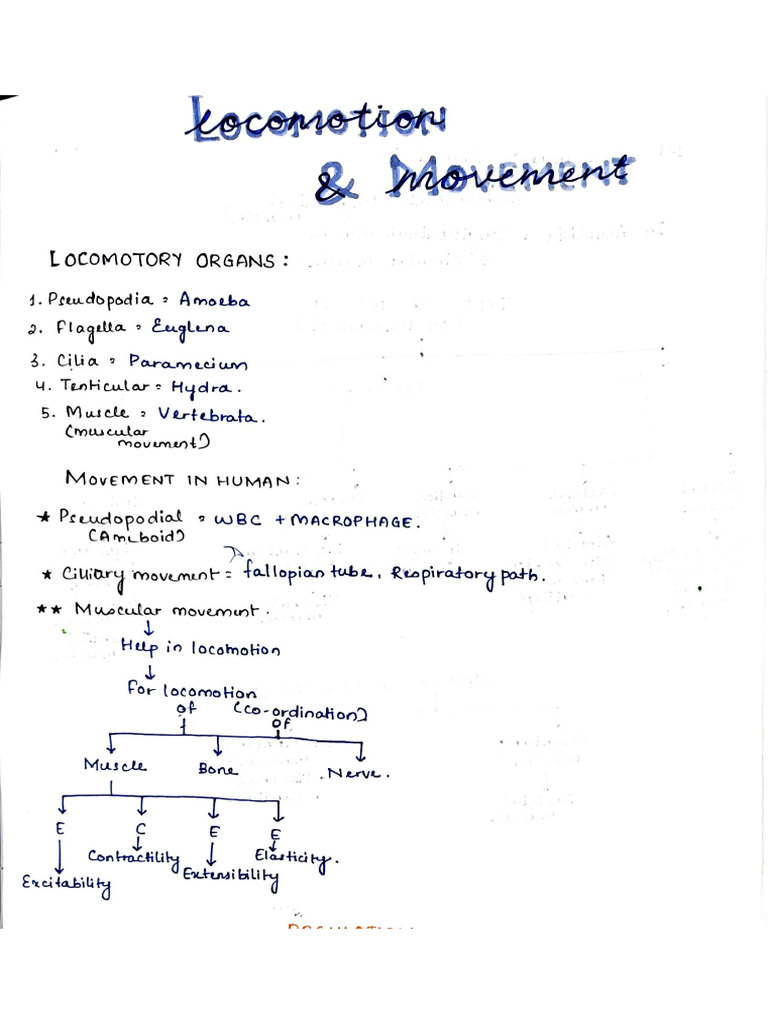 Locomotion
& Movement
LOCOMOTORY ORGANS:
1. Pseudopodia = Amoeba
2. Flagella = Euglena
3. Cilia = Paramecium
4. Tenticular = Hydra.
5. Muscle = Vertebrata.
(muscular
movement)
MOVEMENT IN HUMAN:
* Pseudopodial = WBC + MACROPHAGE.
(Ameboid)
* Cilliary movement = fallopian tube, Respiratory path.
** Muscular movement.
Help in locomotion
For locomotion
of (co-ordination)
of
Muscle Bone Nerve.
E C E E
Contractility Elasticity.
Excitability Extensibility